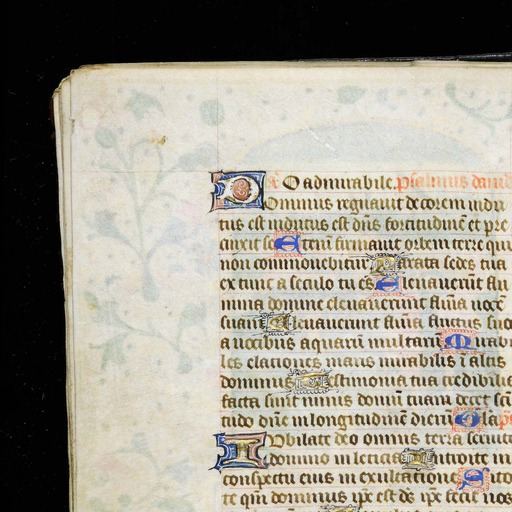 O admirabile. psalmus david
Dominus regnavit decorem indu
tus est indutus est dñs fortitudinẽ et pre
cinxit se Etenĩ firmavit orbem terre qui
non commovebitur Parata sedes tua
ex tunc a seculo tu es Elevaverũt flu
mina domine elevaverunt flũia vocẽ
suam Elevaverunt flũia fluctus suo
a vocibus aquarũ multarũ Mirabi
les elationes maris mirabilis ĩ altis
dominus Testimonia tua credibilia
facta sunt nimis domũ tuam decet sc̃i
tudo dñe in longitudinẽ dierũ Gla ps
Iubilate deo omnis terra servite
domino in leticia Introite in
conspectu eius in exultatione Scito
te qm̃ dominus ip̃e est ds̃ ip̃e fecit nos